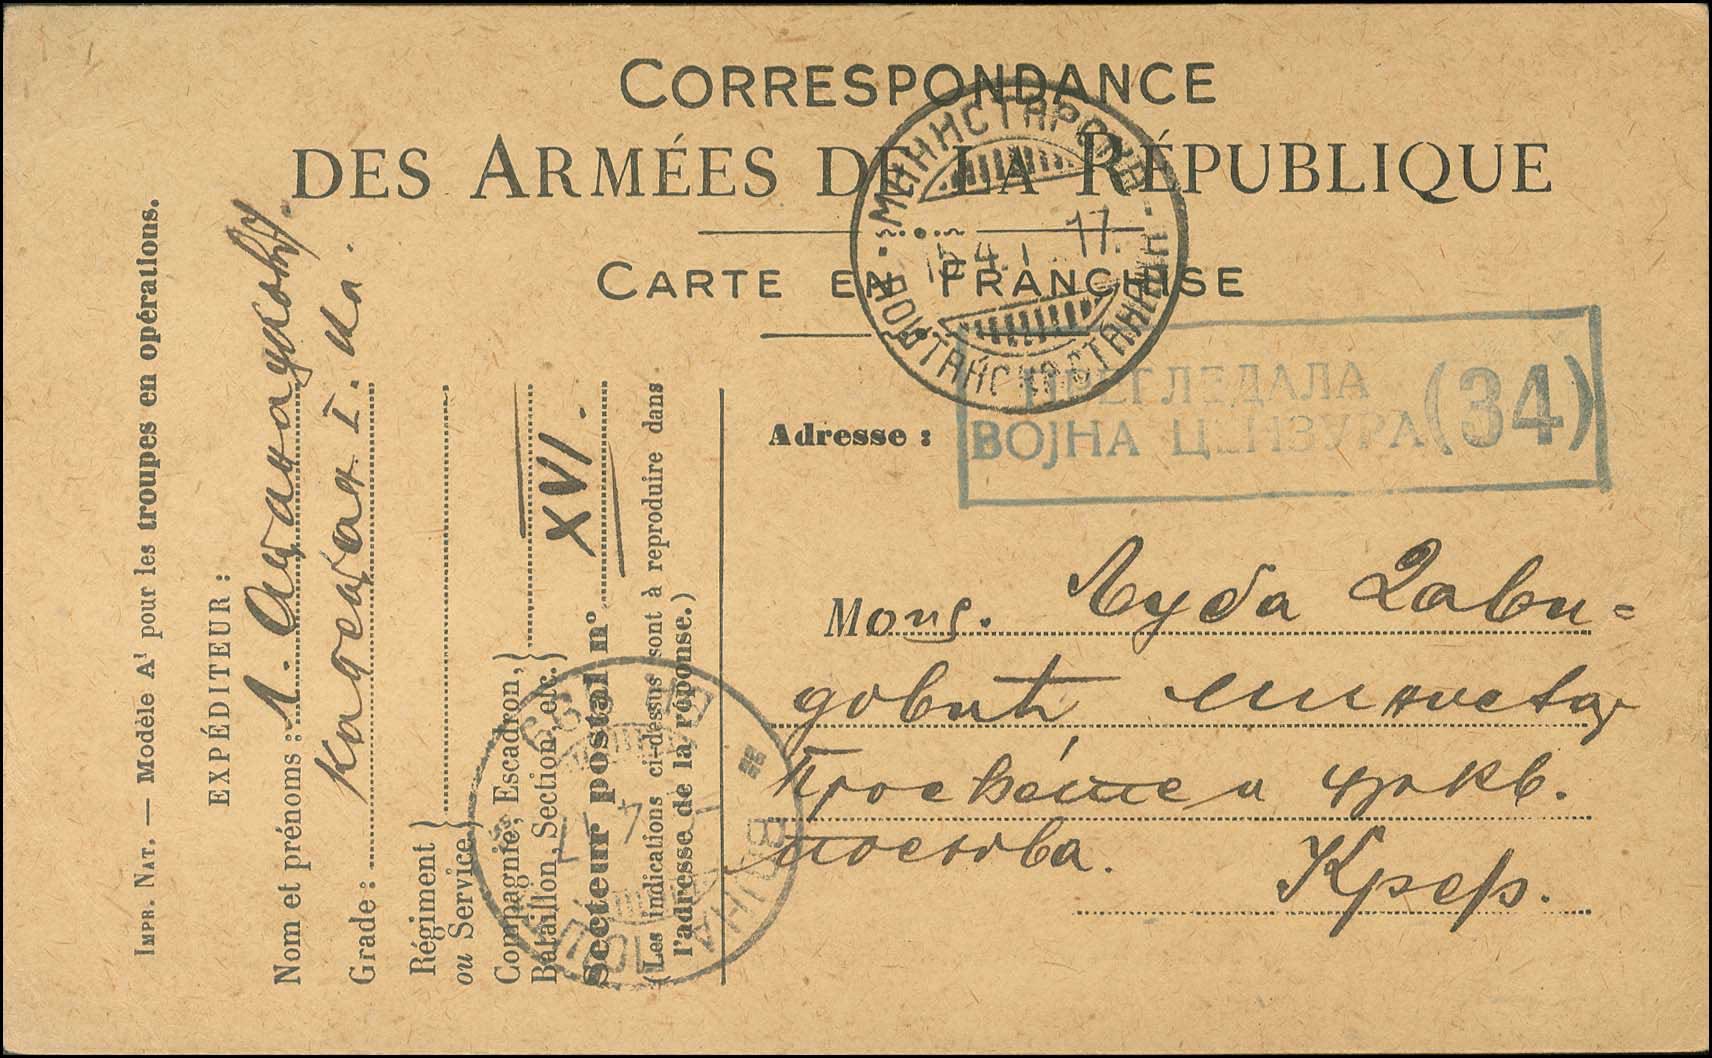 CORRESPONDANCE
DES ARMÉES DE LA RÉPUBLIQUE
CARTE EN FRANCHISE
ПРЕГЛЕДАЛА
ВОЈНА ЦЕНЗУРА (34)
Adresse :
Mons. Љуба Давидовић министар
Просвете и цркв.
послова.
Крф.
IMPR. NAT. — Modèle A¹ pour les troupes en opérations.
EXPÉDITEUR :
Nom et prénoms :
Grade : капетан I. кл.
Régiment
ou Service.
Compagnie, Escadron,
Bataillon, Section, etc.
Secteur postal n° XVI.
(Les indications ci-dessus sont à reproduire dans
l'adresse de la réponse.)
ВОЈНА ПОШТА
17